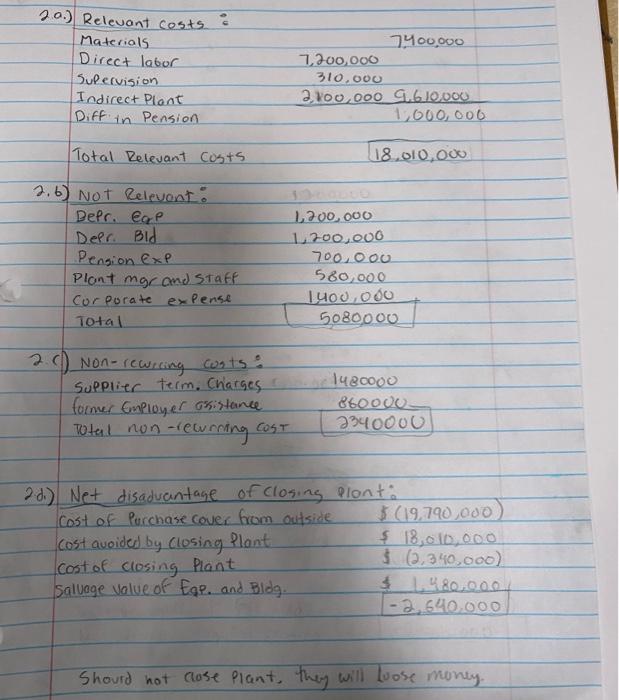 2.a.) Relevant costs :
Materials 7400,000
Direct labor 7,200,000
Supervision 310,000
Indirect Plant 2,100,000 9,610,000
Diff in Pension 1,000,000
Total Relevant Costs 18,010,000
2.b) Not Relevant :
Depr. eqp 1,200,000
Depr. Bld 1,200,000
Pension Exp 700,000
Plant mgr and staff 580,000
Corporate expense 1400,000
Total 5080000
2.c) Non-recurring costs :
Supplier term. Charges 1480000
former Employer assistance 860000
Total non-recurring cost 2340000
2d.) Net disadvantage of closing plant :
Cost of Purchase cover from outside $ (19,790,000)
Cost avoided by closing Plant $ 18,010,000
Cost of closing Plant $ (2,340,000)
Salvage value of Eqp. and Bldg. $ 1,480,000
-2,640,000
Should not close Plant, they will loose money.